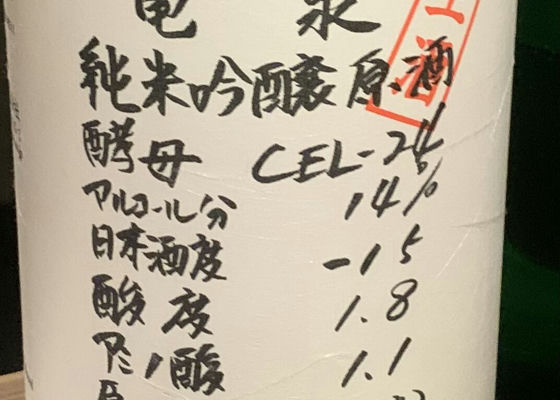 亀泉
純米吟醸原酒
酵母 CEL-24
アルコール分 14%
日本酒度 -15
酸度 1.8
アミノ酸 1.1